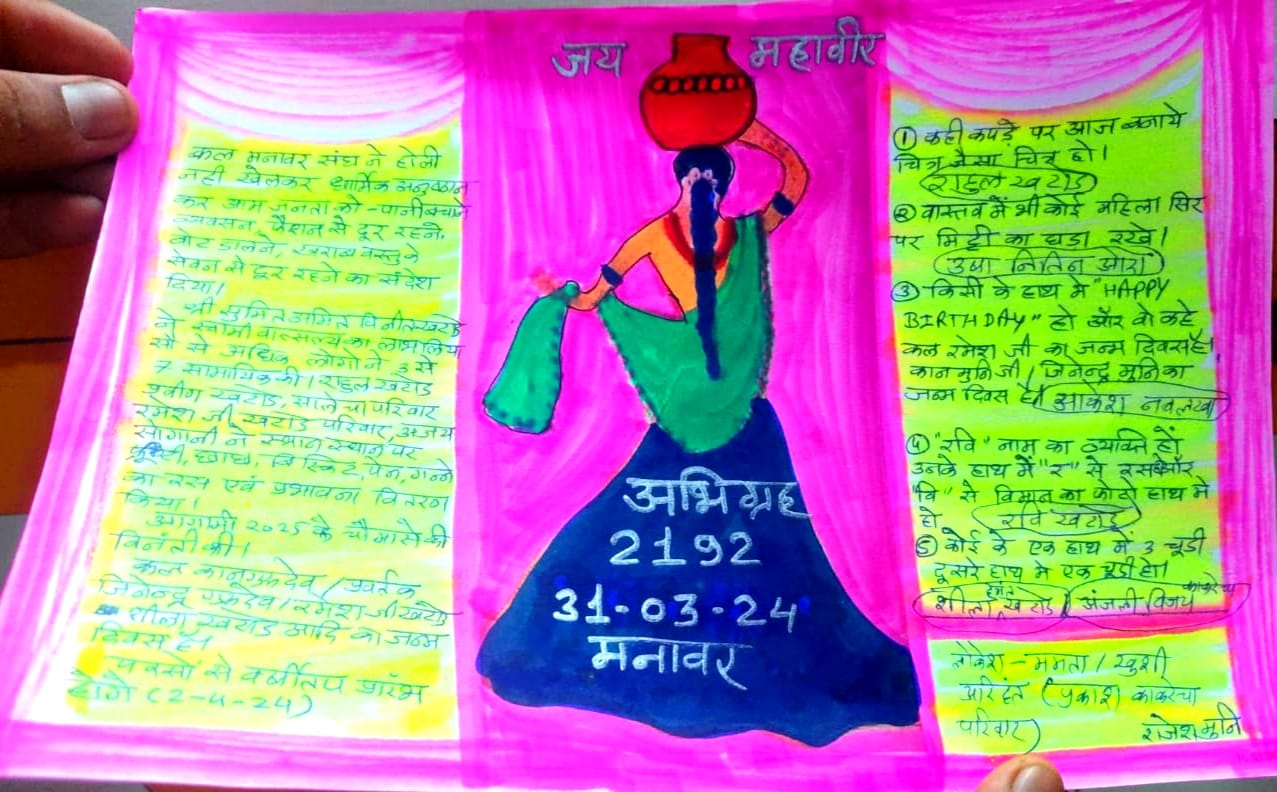 जय महावीर
कल मनावर संघ ने होली
नही खेलकर धार्मिक अनुष्ठान
कर आम जनता को - पानी बचाने
व्यसन, फैशन से दूर रहने,
वोट डालने, खराब वस्तु के
सेवन से दूर रहने का संदेश
दिया।
श्री सुमित अमित विनीत खटोड़
ने स्वामीवात्सल्य का लाभ लिया
सौ से अधिक लोगो ने 3 से
7 सामायिक की। राहुल खटोड़
खटोड़, सालेचा परिवार
रमेश जी खटोड़ परिवार, अजय
सोगानी ने स्थान स्थान पर
छाछ, बिस्किट, पेन, गन्ने
का रस एवं प्रभावना वितरण
किया।
आगामी 2025 के चौमासे की
विनंती की।
कल कानगुरुदेव / प्रवर्तक
जिनेन्द्र गुरुदेव / रमेश जी खटोड़
शीला खटोड़ आदि का जन्म
दिवस है।
परसों से वर्षीतप प्रारंभ
होंगे (2-4-24)
अभिग्रह
2192
31-03-24
मनावर
① कही कपड़े पर आज बनाये
चित्र जैसा चित्र हो।
राहुल खटोड़
② वास्तव में भी कोई महिला सिर
पर मिट्टी का घडा रखे।
उषा नितिन ओरा
③ किसी के हाथ मे "HAPPY
BIRTHDAY" हो और वो कहे
कल रमेश जी का जन्म दिवस है।
कान मुनि जी / जिनेन्द्र मुनि का
जन्म दिवस है। नवलखा
④ "रवि" नाम का व्यक्ति हों
उनके हाथ में "र" से और
"वि" से विमान का फोटो हाथ मे
हो रवि खटोड़
⑤ कोई के एक हाथ में 3 चूडी
दूसरे हाथ मे एक चूडी हो।
शीला खटोड़ / अंजली विजय काकरेचा
लोकेश - ममता / खुशी
अरिहंत (प्रकाश काकरेचा
परिवार) राजेश मुनि